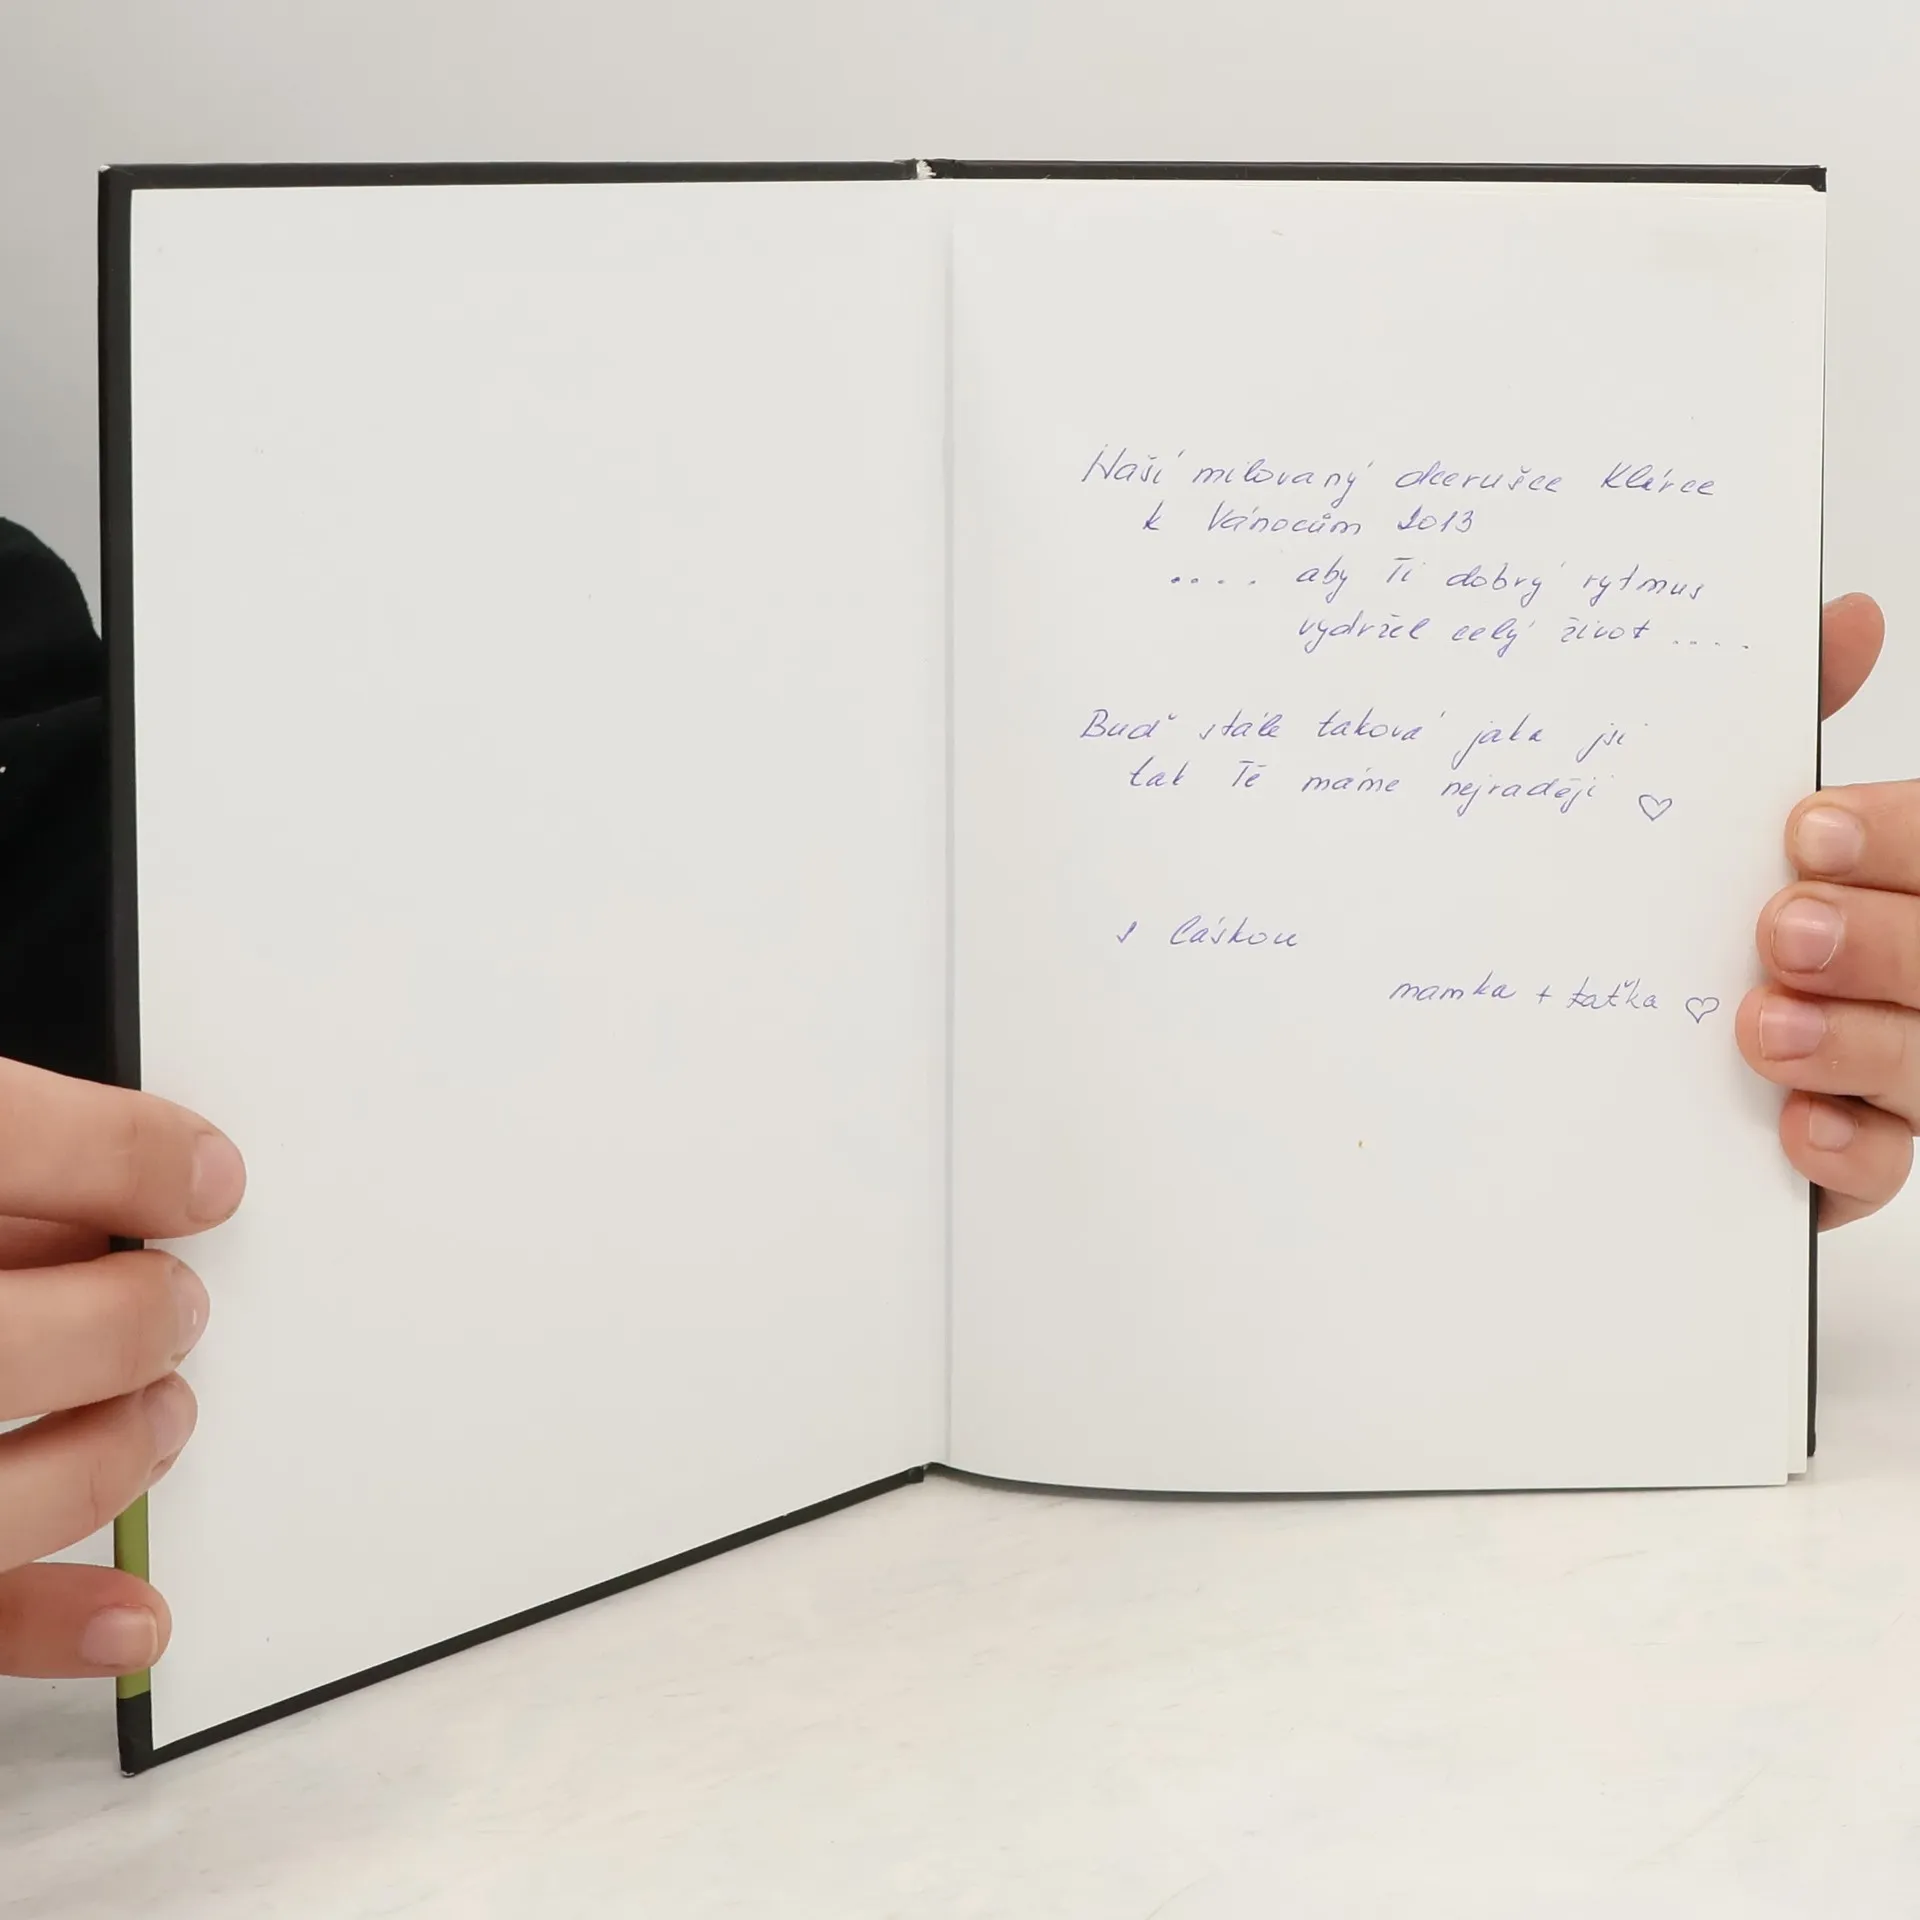 Naší milovaný dcerušce Klárce
k Vánocům 2013
.... aby Ti dobrý rytmus
vydržel celý život ....
Buď stále taková jaka jsi
tak Tě máme nejraději ♡
s láskou
mamka + taťka ♡